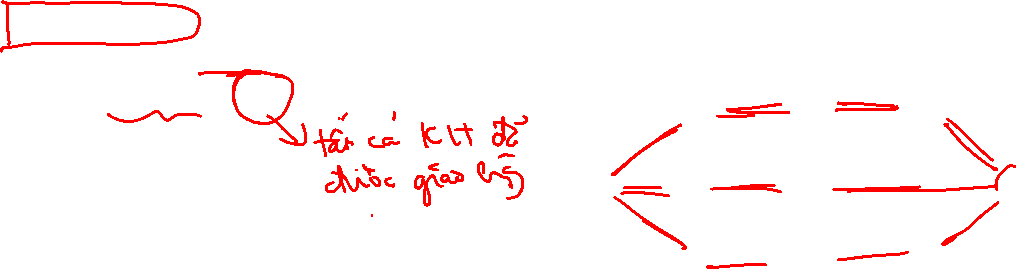 tất cả KH đã
được giao hàng